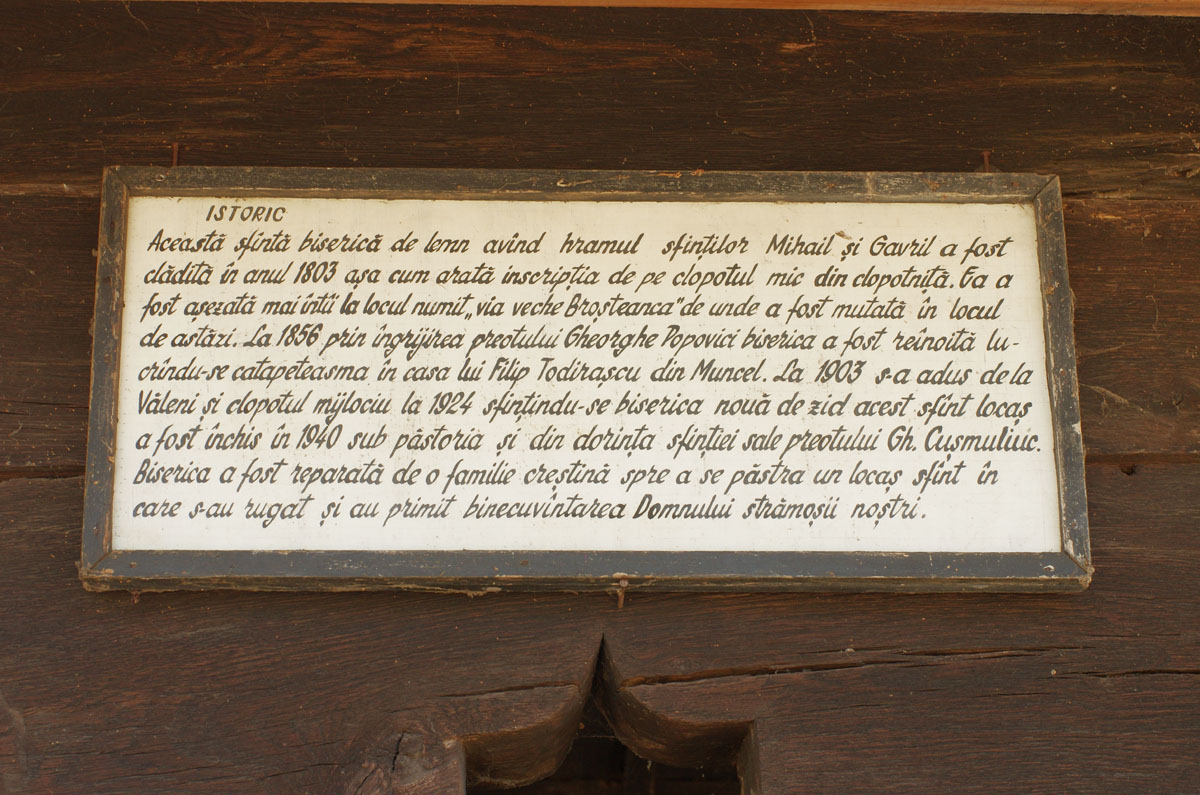 ISTORIC
Această sfîntă biserică de lemn avînd hramul sfinților Mihail și Gavril a fost
clădită în anul 1803 așa cum arată inscripția de pe clopotul mic din clopotniță. Ea a
fost așezată mai întîi la locul numit „via veche Broșteanca" de unde a fost mutată în locul
de astăzi. La 1856 prin îngrijirea preotului Gheorghe Popovici biserica a fost reînoită lu-
crîndu-se catapeteasma în casa lui Filip Todirașcu din Muncel. La 1903 s-a adus de la
Văleni și clopotul mijlociu la 1924 sfințindu-se biserica nouă de zid acest sfînt locaș
a fost închis în 1940 sub păstoria și din dorința sfinției sale preotului Gh. Cușmuliuc.
Biserica a fost reparată de o familie creștină spre a se păstra un locaș sfînt în
care s-au rugat și au primit binecuvîntarea Domnului strămoșii noștri.